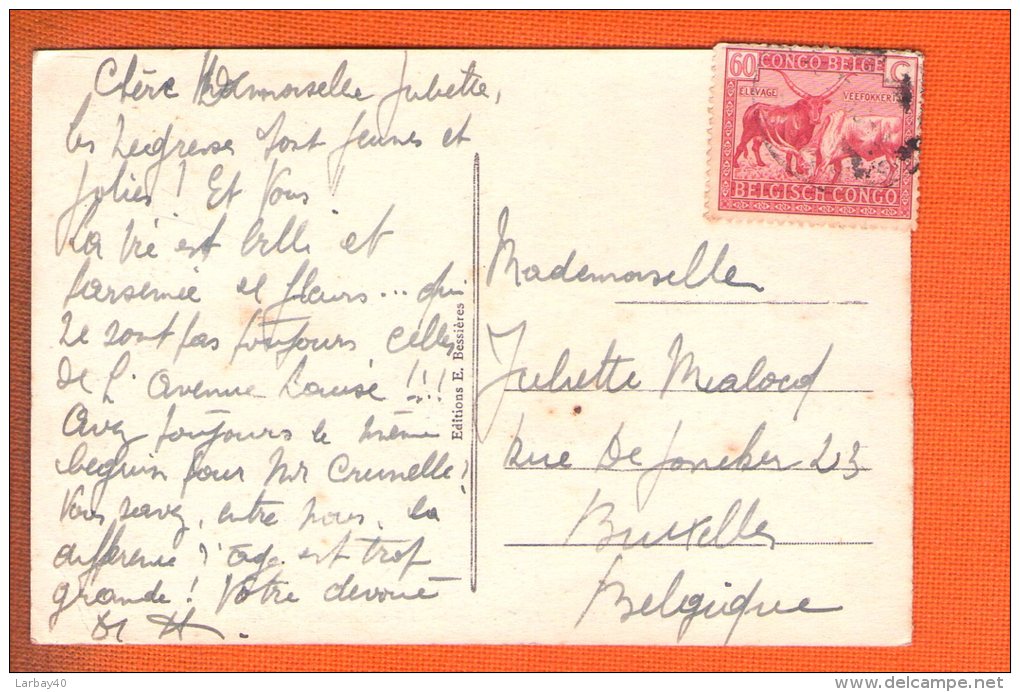 Chère Mademoiselle Juliette,
Les negresses sont jeunes et
jolies ! Et Vous
La vie est belle et
parsemée de fleurs... qui
ne sont pas toujours celles
de L'avenue Louise !!!
Avez toujours le même
beguin pour Mr Crunelle?
Vous savez, entre nous, la
difference d'age est trop
grande! Votre devoué
60 CONGO BELGE C
ELEVAGE VEEFOKKERIJ
BELGISCH CONGO
Editions E. Bessières
Mademoiselle
Juliette Mealocd
Rue De Joncker 23
Bruxelles
Belgique
Larbay40
www.delcampe.net